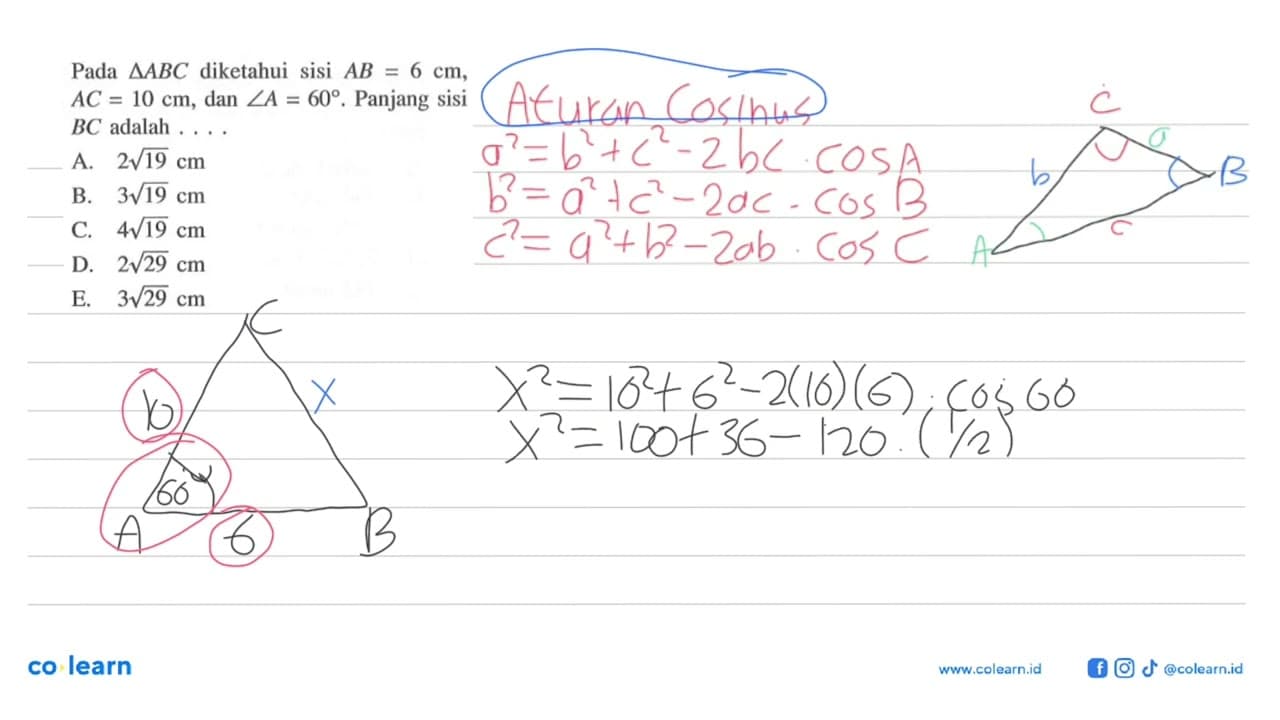 Pada ΔABC diketahui sisi AB = 6 cm,
AC = 10 cm, dan ∠A = 60°. Panjang sisi
BC adalah . . . .
A. 2√19 cm
B. 3√19 cm
C. 4√19 cm
D. 2√29 cm
E. 3√29 cm
Aturan Cosinus
a² = b² + c² - 2bc . cos A
b² = a² + c² - 2ac . cos B
c² = a² + b² - 2ab . cos C
C
a
b
B
A
c
C
10
X
60°
A
6
B
X² = 10² + 6² - 2(10)(6) . cos 60
X² = 100 + 36 - 120 . (1/2)
co learn
www.colearn.id
@colearn.id